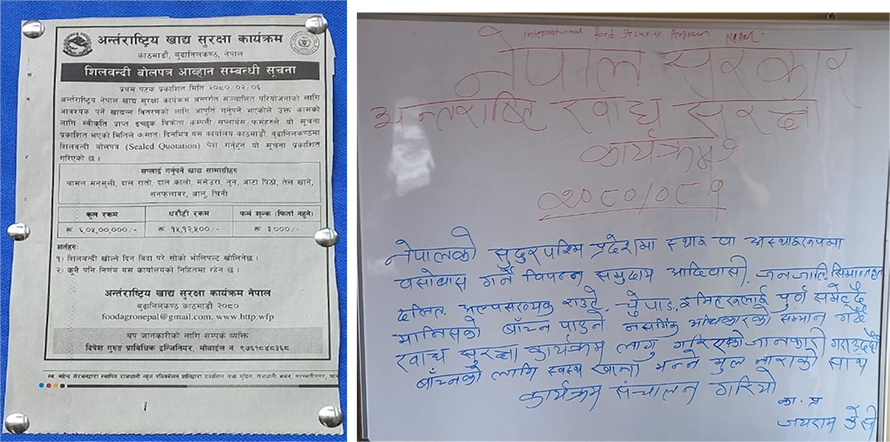 अर्न्तराष्ट्रिय खाद्य सुरक्षा कार्यक्रम
काठमाडौं, बुढानिलकण्ठ, नेपाल
शिलवन्दी बोलपत्र आव्हान सम्बन्धी सूचना
प्रथम पटक प्रकाशित मिति २०८०/०२/०६
अर्न्तराष्ट्रिय नेपाल खाद्य सुरक्षा कार्यक्रम अन्तरगत सञ्चालित परियोजनाको लागि
आवश्यक पर्ने खाद्यन्न वितरणको लागि आपुर्ति गर्नुपर्ने भएकोले उक्त कामको
लागि स्वीकृति प्राप्त इच्छुक विक्रेता/कम्पनी सप्लायर्स/फर्महरुले यो सूचना
प्रकाशित भएको मितिले ७ सात दिनभित्र यस कार्यालय काठमाडौं, बुढानिलकण्ठमा
शिलवन्दी बोलपत्र (Sealed Quotation) पेश गर्नुहुन यो सूचना प्रकाशित
गरिएको छ ।
सप्लाई गर्नुपर्ने खाद्य सामाग्रीहरु
चामल मनसुली, दाल रातो, दाल कालो, मसेउरा, नुन, आटा पिठो, तेल खाने,
सनफ्लावर, आलु, चिनी
कूल रकम धरौटी रकम फर्म शुल्क (फिर्ता नहुने)
रू ६,०५,००,०००/- रू १५,१२,५००/- रू ३०००/-
शर्तहरुः
१) शिलवन्दी खोल्ने दिन विदा परे सोको भोलिपल्ट खोलिनेछ ।
२) कुनै पनि निर्णय यस कार्यालयको निहितमा रहने छ ।
अर्न्तराष्ट्रिय खाद्य सुरक्षा कार्यक्रम नेपाल
बुढानिलकण्ठ काठमाडौं २०८०
foodagronepal@gmail.com, www.http:wfp
थप जानकारीको लागि सम्पर्क व्यक्ति
दिपेश गुरुङ प्राविधिक इन्जिनियर, मोबाईल नं.
International Food Security Program Nepal.
नेपाल सरकार
अन्तराष्ट्रि खाद्य सुरक्षा
कार्यक्रम
२०८०/०८
नेपालको सुदुरपश्चिम प्रदेशमा स्थाइ वा अस्थाइरूपमा
वसोवास गर्ने विपन्न समुदाय आदिवासी, जनजाति
दलित अल्पसंख्यक राउटे,
मानिसको बाँच्न पाउने नैसर्गिक अधिकारको सम्मान गर्दै
खाद्य सुरक्षा कार्यक्रम लागु गरिएको जानकारी गराउदछौ
बाँच्नको लागि स्वस्थ खाना भन्ने मुल नाराको साथ
कार्यक्रम संचालन गरियो
का. प्र
जयराम